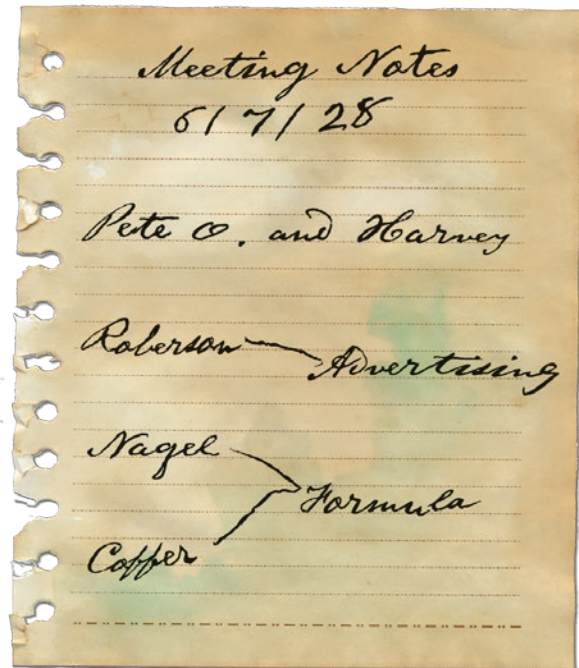 Meeting Notes
6/7/28
Pete O. and Harvey
Roberson
Advertising
Nagel
Formula
Copper